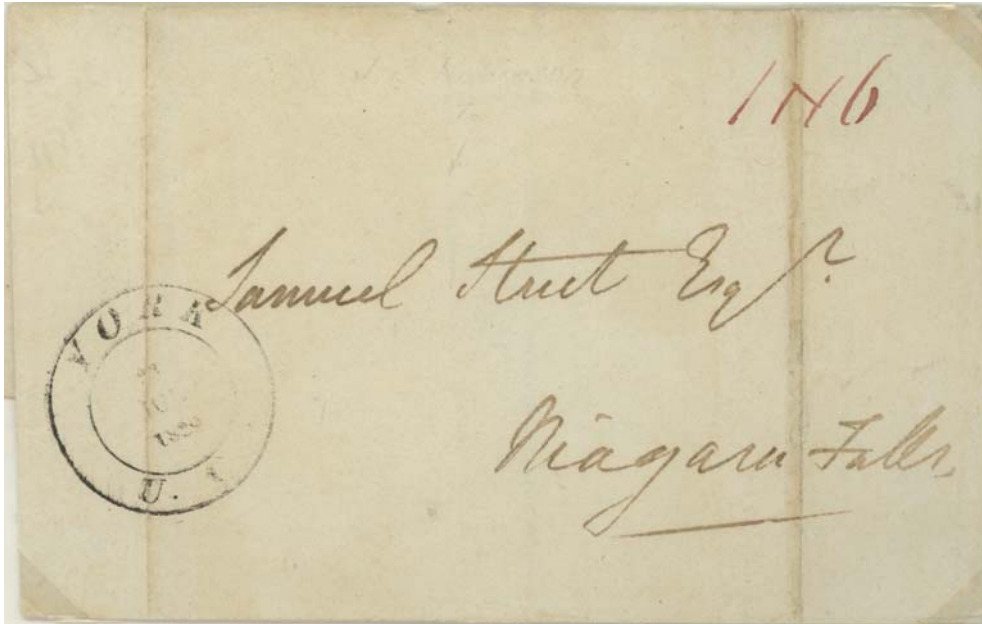 1 N 6
Samuel Street Esqr.
Niagara Falls,
YORK
U.